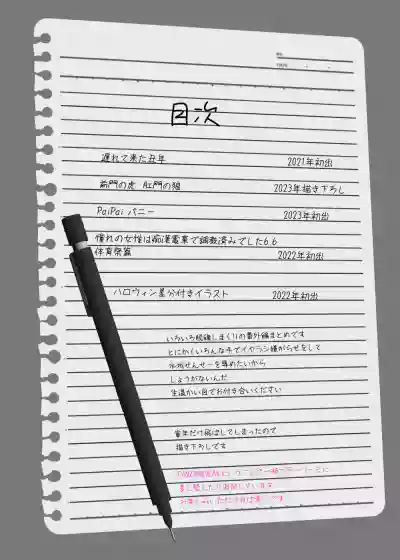 目次
遅れて来た丑年 2021年初出
前門の虎 肛門の狼 2023年描き下ろし
PaiPai バニー 2023年初出
憧れの女性は痴漢電車で調教済みでした6.6
体育祭篇 2022年初出
ハロウィン差分付きイラスト 2022年初出
いろいろ勉強しまくりの番外編まとめです
とにかくいろんな手でイヤラシ嫌がらせをして
せんせーを辱めたいから
しょうがないんだ
生温かい目でお付き合いください
寅年だけ飛ばしてしまったので
描き下ろしです